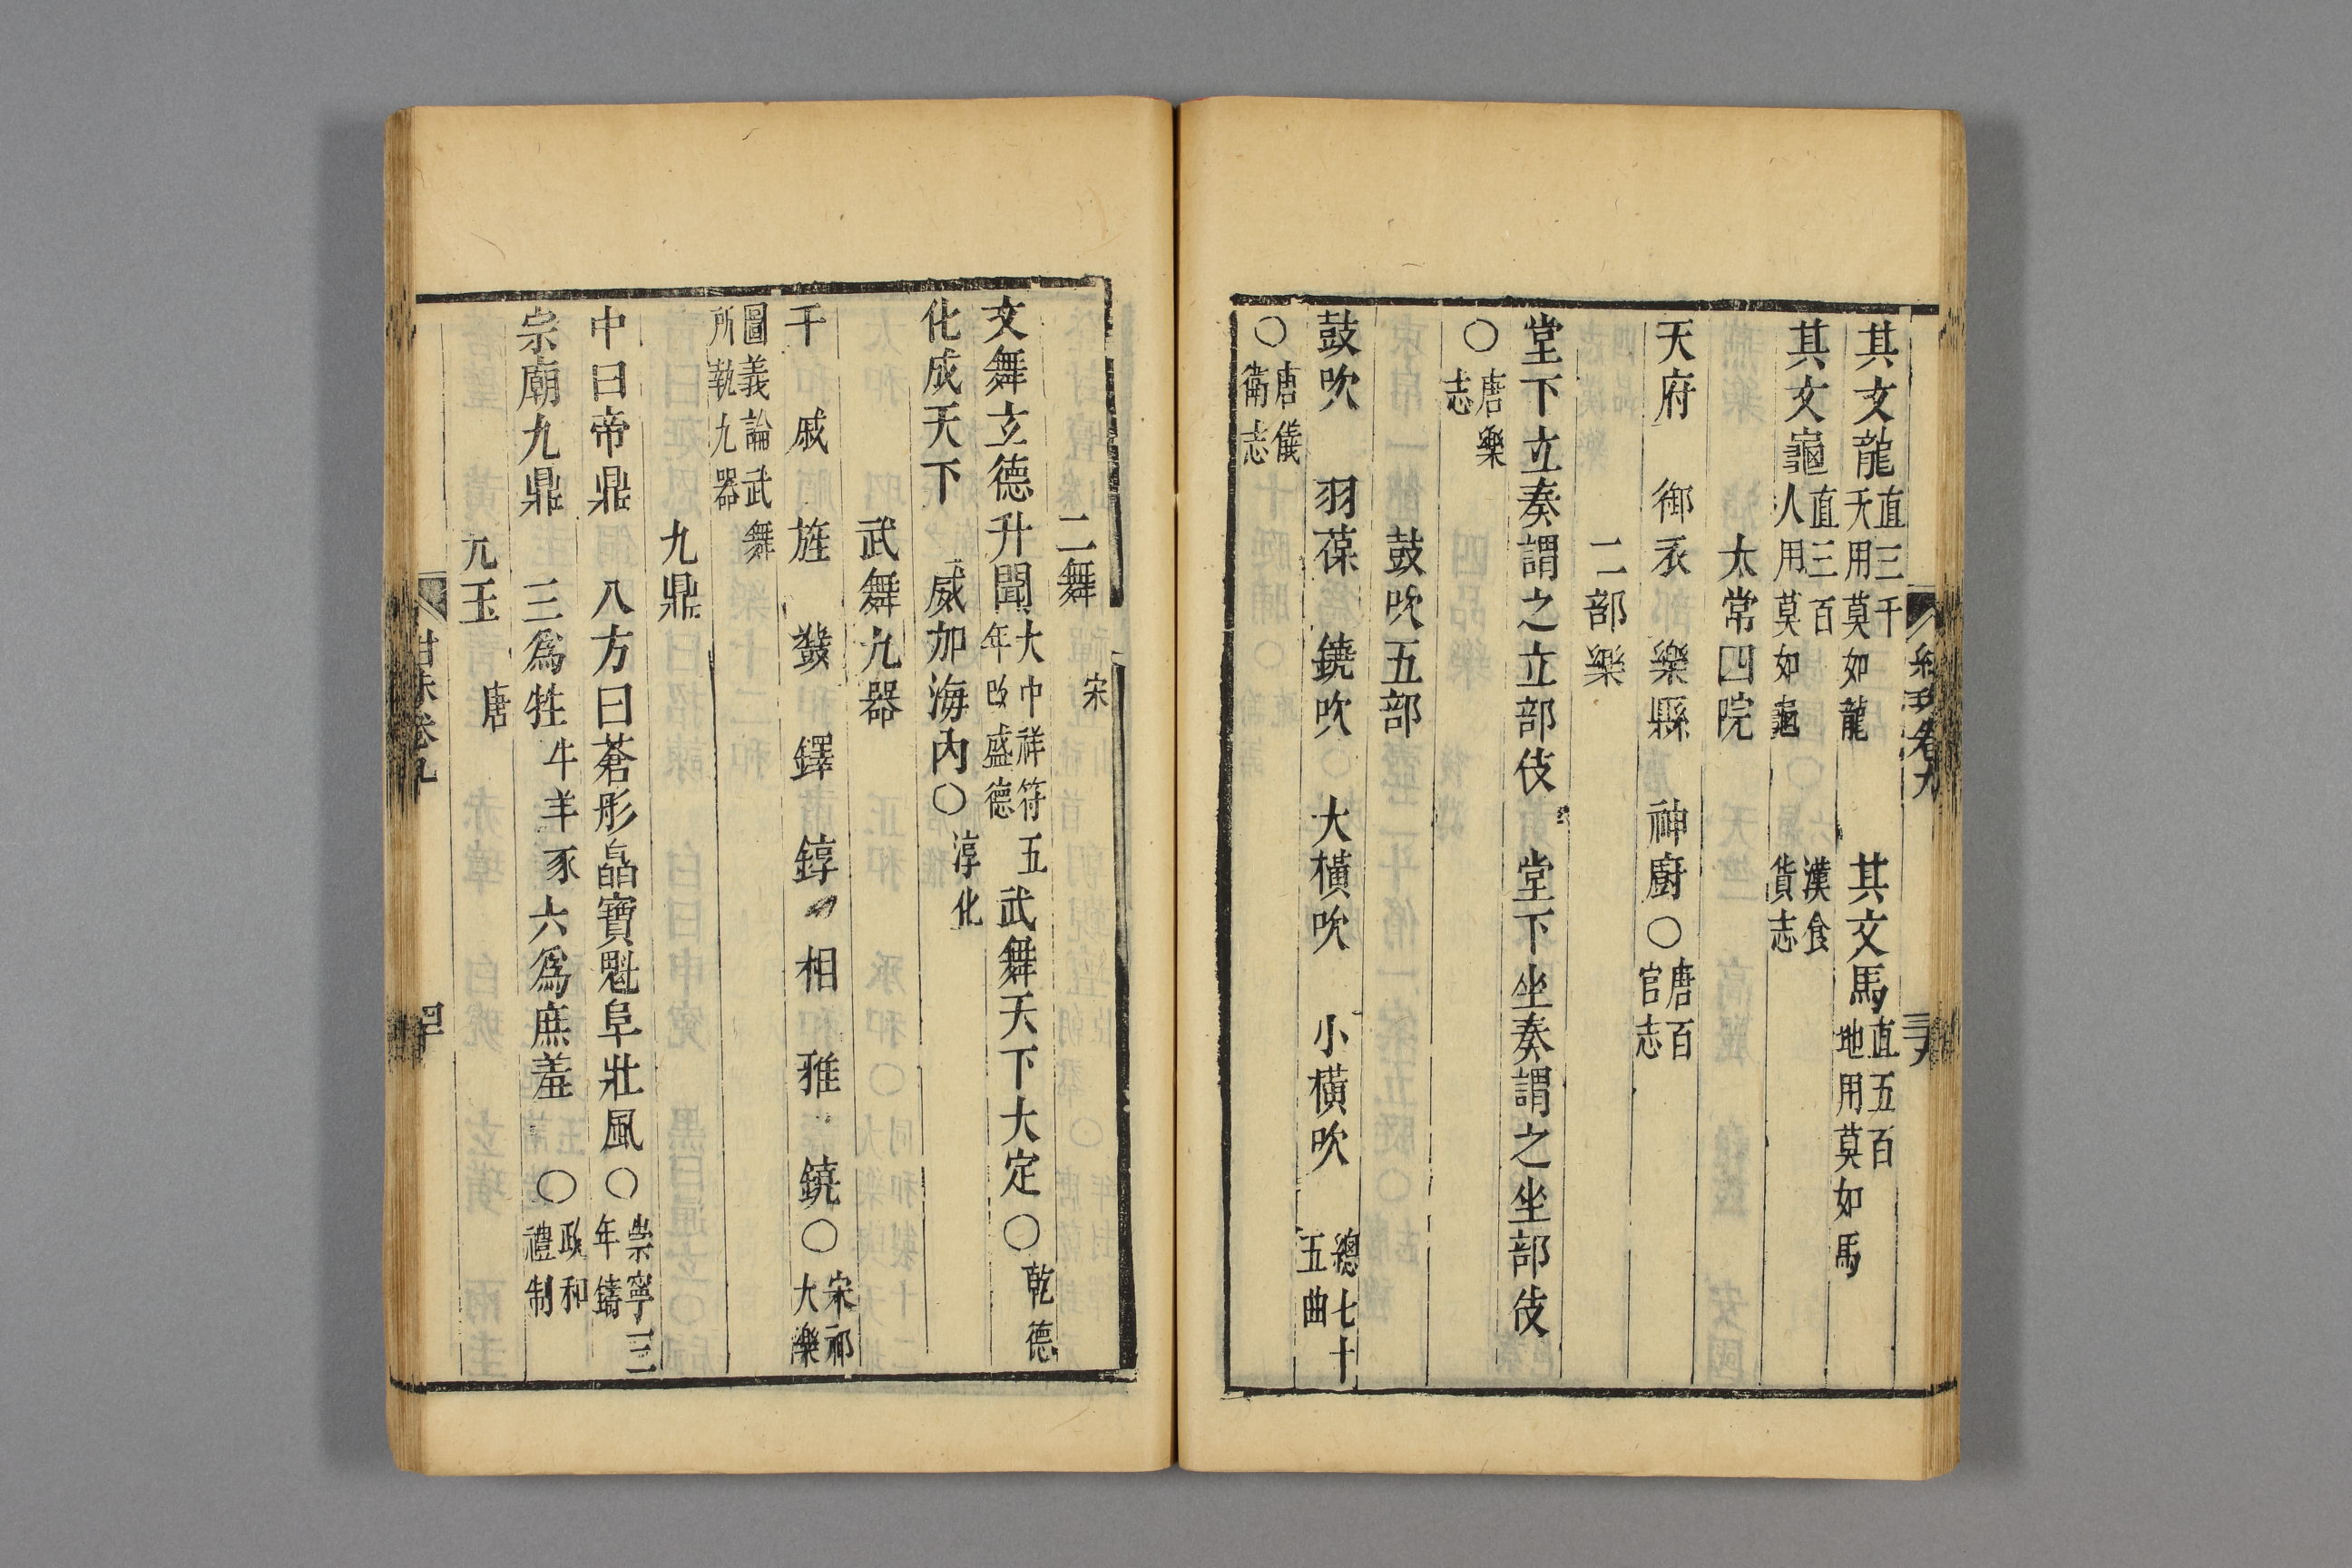 其文龍直三千天用莫如龍 其文馬直五百地用莫如馬
其文龜直三百人用莫如龜 漢食貨志
太常四院
天府 御衣 樂縣 神廚○唐百官志
二部樂
堂下立奏謂之立部伎 堂下坐奏謂之坐部伎
○唐樂志
鼓吹五部
鼓吹 羽葆 鐃吹 大橫吹 小橫吹 總七十五曲
○唐儀衛志
二舞 宋
文舞玄德升聞大中祥符五年改盛德武舞天下大定○乾德
化成天下 威加海內○淳化
武舞九器
干 戚 旌 鼗 鐸 錞 相 雅 鐃○宋祁大樂
圖義論武舞所執九器
九鼎
中曰帝鼎 八方曰蒼彤皛寶魁阜壯風○崇寧三年鑄
宗廟九鼎 三為牲牛羊豕六為庶羞 ○政和禮制
元玉 唐